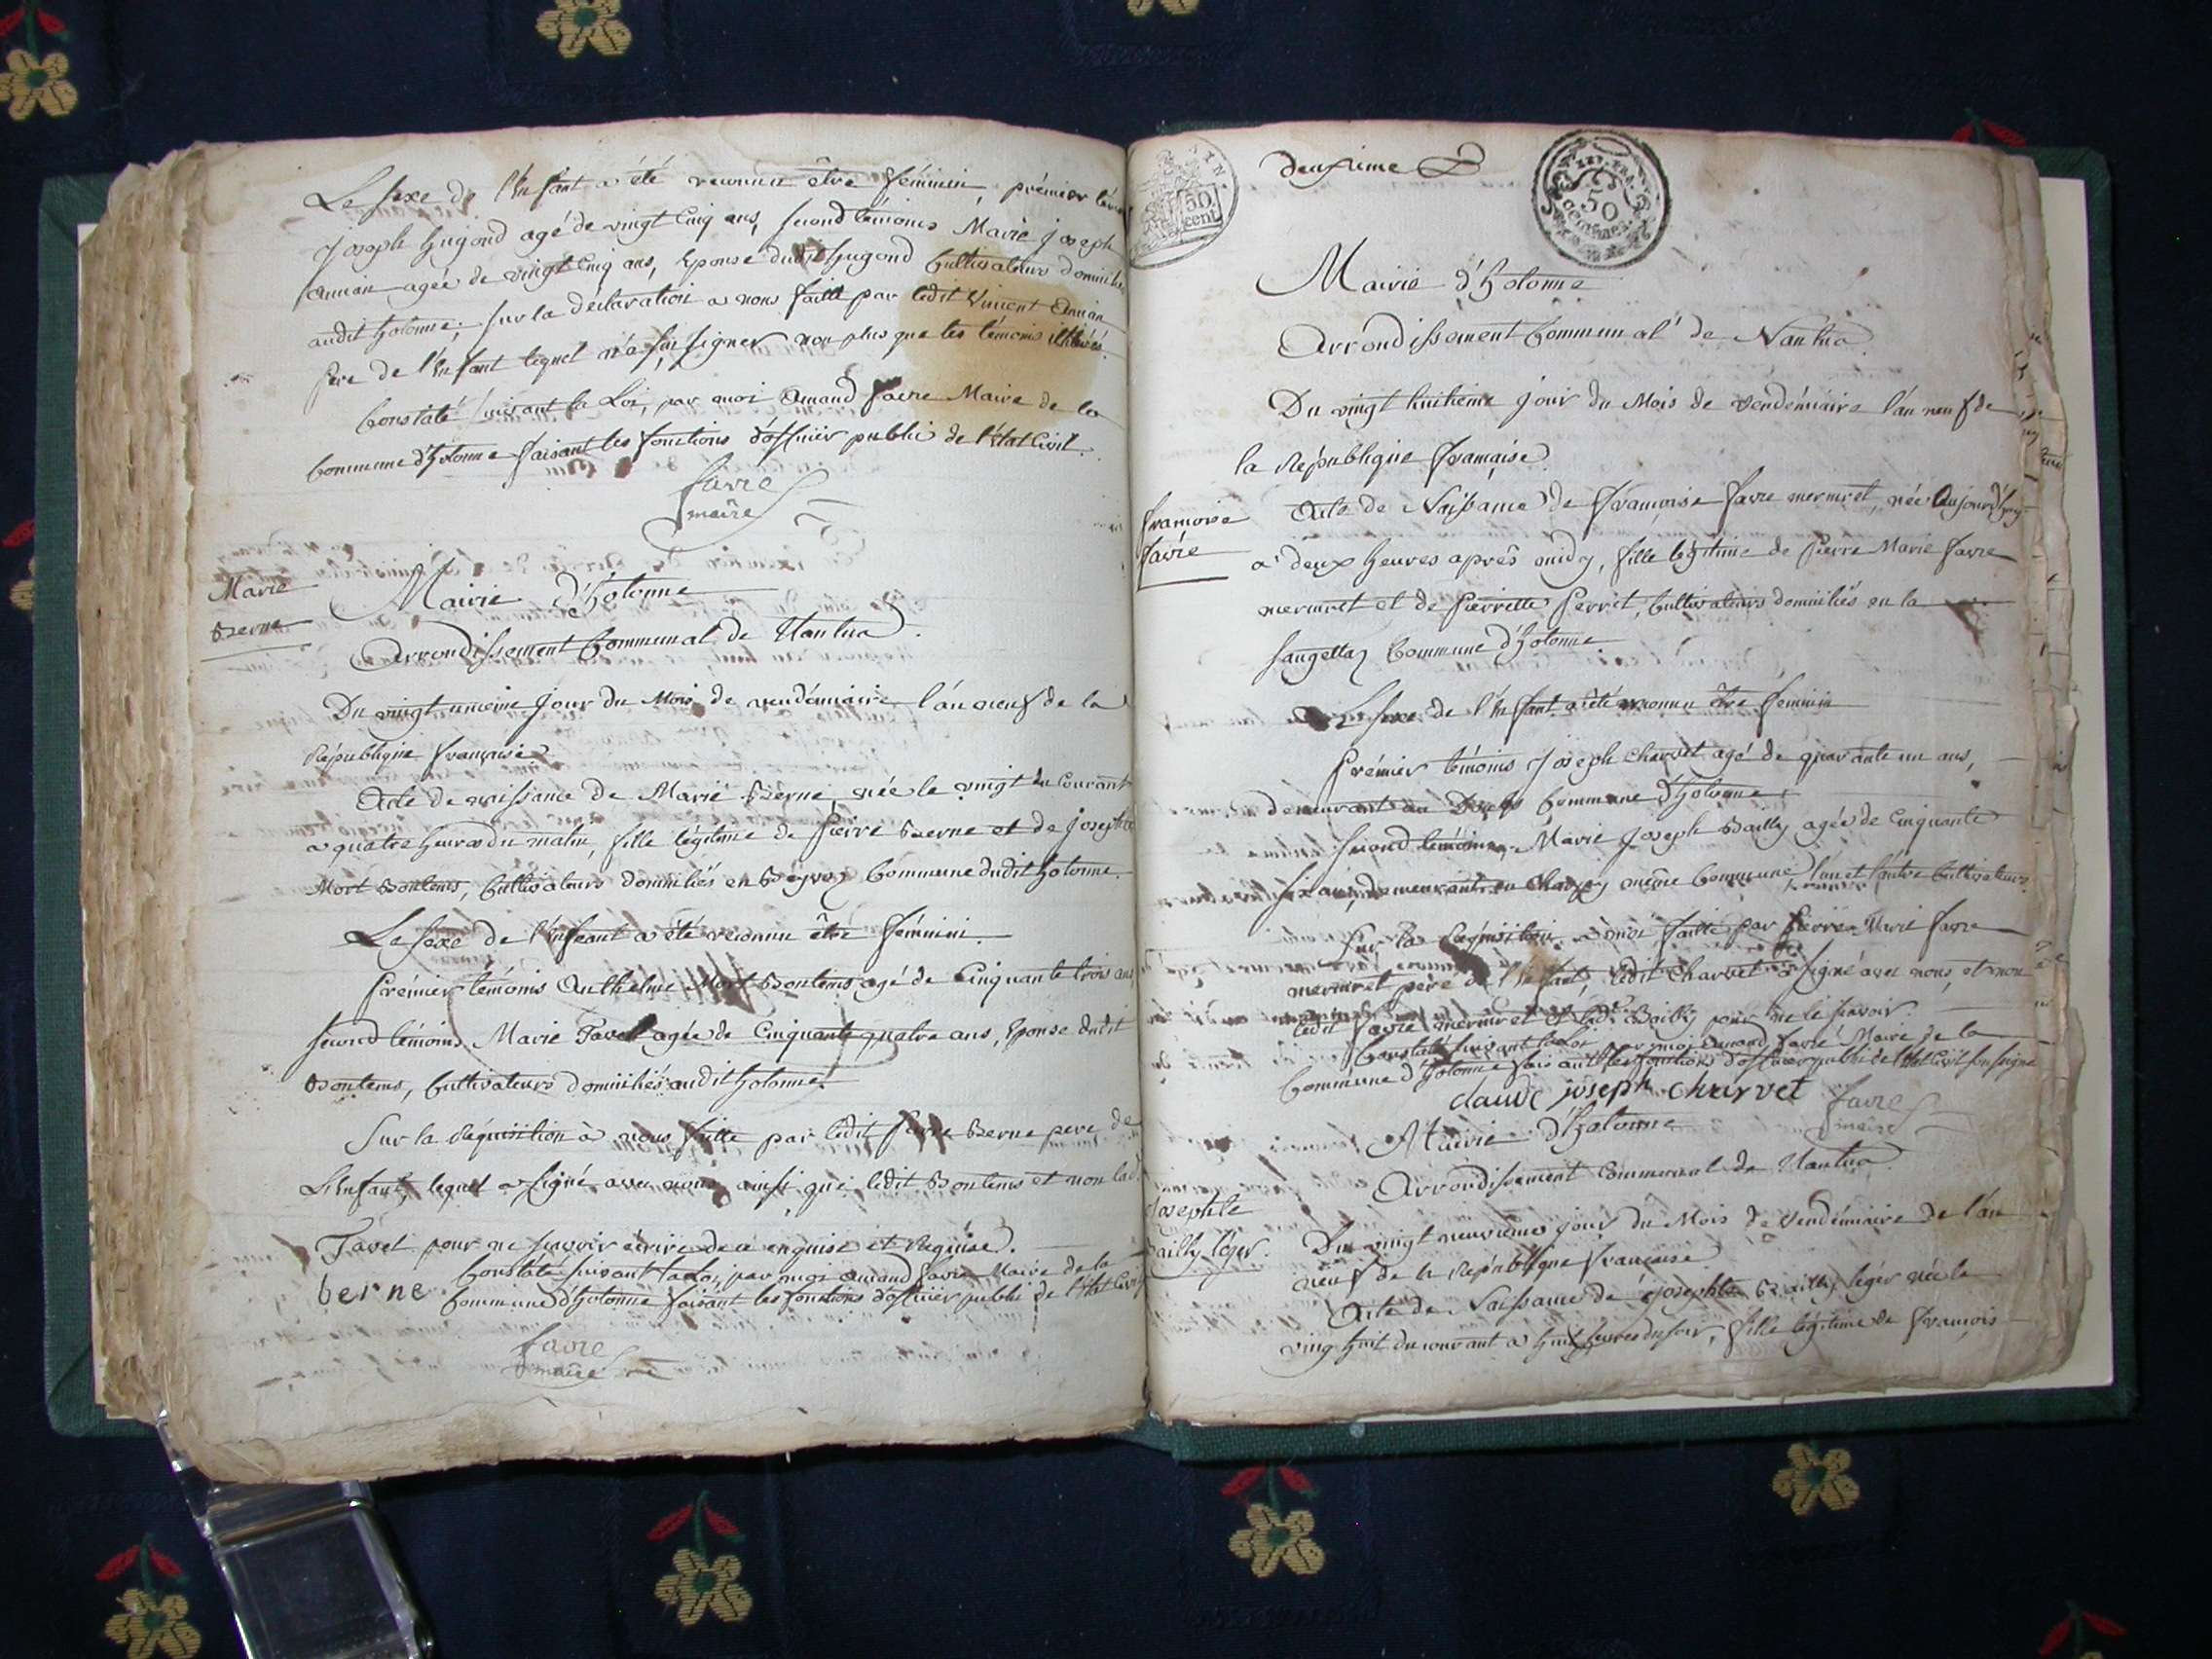 Le sexe de l'Enfant a été reconnu être féminin, prémier témoin
Joseph hugond agé de vingt Cinq ans, second témoins Marie Joseph
agée de vingt Cinq ans, Epouse dudit hugond Cultivateurs domiciliés
audit hotonne; sur la déclaration a nous faitte par ledit Vincent
Pere de l'Enfant lequel n'a sçu signer non plus que les témoins
Constaté suivant la Loi, par moi Amand favre Maire de la
Commune d'hotonne faisant les fonctions d'officier public de l'état Civil.
favre
maire
Marie
Berne
Mairie d'hotonne
Arrondissement Communal de Nantua.
Du vingt unieme jour du Mois de vendémiaire l'an neuf de la
République française
Acte de naissance de Marie Berne, née le vingt du Courant
a quatre heures du matin, fille légitime de Pierre Berne et de Josephte
Mort Bontems, Cultivateurs domiciliés en Commune dudit hotonne.
Le sexe de l'Enfeant a été reconnu être féminin.
Prémier témoins Anthelme Mort Bontems agé de Cinquante trois ans
second témoins Marie Tavel agée de Cinquante quatre ans, Epouse dudit
Bontems, Cultivateurs domiciliés audit hotonne.
Sur la Réquisition à nous faitte par ledit Pierre Berne pere de
L'Enfant, lequel a signé avec nous ainsi que ledit Bontems et non lad.
Tavel pour ne sçavoir écrire de ce enquise et Requise.
Constaté suivant la Loi, par moi amand favre Maire de la
berne Commune d'hotonne faisant les fonctions d'officier public de l'état Civil
favre
maire
50
cent
deuxieme
50
Mairie d'hotonne
Arrondissement Communal de Nantua
Du vingt huitieme jour du Mois de vendémiaire l'an neuf de
la République française.
francoise
favre
Acte de Naissance de françoise favre mermet, née Aujourd'huy
a deux heures après midy, fille légitime de Pierre Marie favre
mermet et de Pierrette Perret, Cultivateurs domiciliés en la
Commune d'hotonne
Le sexe de l'Enfant a été reconnu être féminin
Prémier témoins Joseph charvet agé de quarante un ans,
demeurant au Commune d'hotonne
second témoins Marie Joseph Bailly agée de Cinquante
six ans, demeurant en même Commune l'un et l'autre Cultivateurs
Sur la Réquisition à moi faitte par Pierre Marie favre
mermet père de l'Enfant, ledit charvet a signé avec nous, et non
ledit favre mermet et lad. Bailly pour ne le sçavoir.
Constaté suivant la Loi par moi amand favre Maire de la
Commune d'hotonne faisant les fonctions d'officier public de l'état Civil soussigné
claude joseph charvet favre
maire
Mairie d'hotonne
Arrondissement Communal de Nantua
Josephte
Bailly léger.
Du vingt neuvieme jour du Mois de Vendémiaire de l'an
neuf de la République française
Acte de Naissance de Josephte Bailly léger née le
ving huit du courant a huit heures du soir, fille légitime de françois